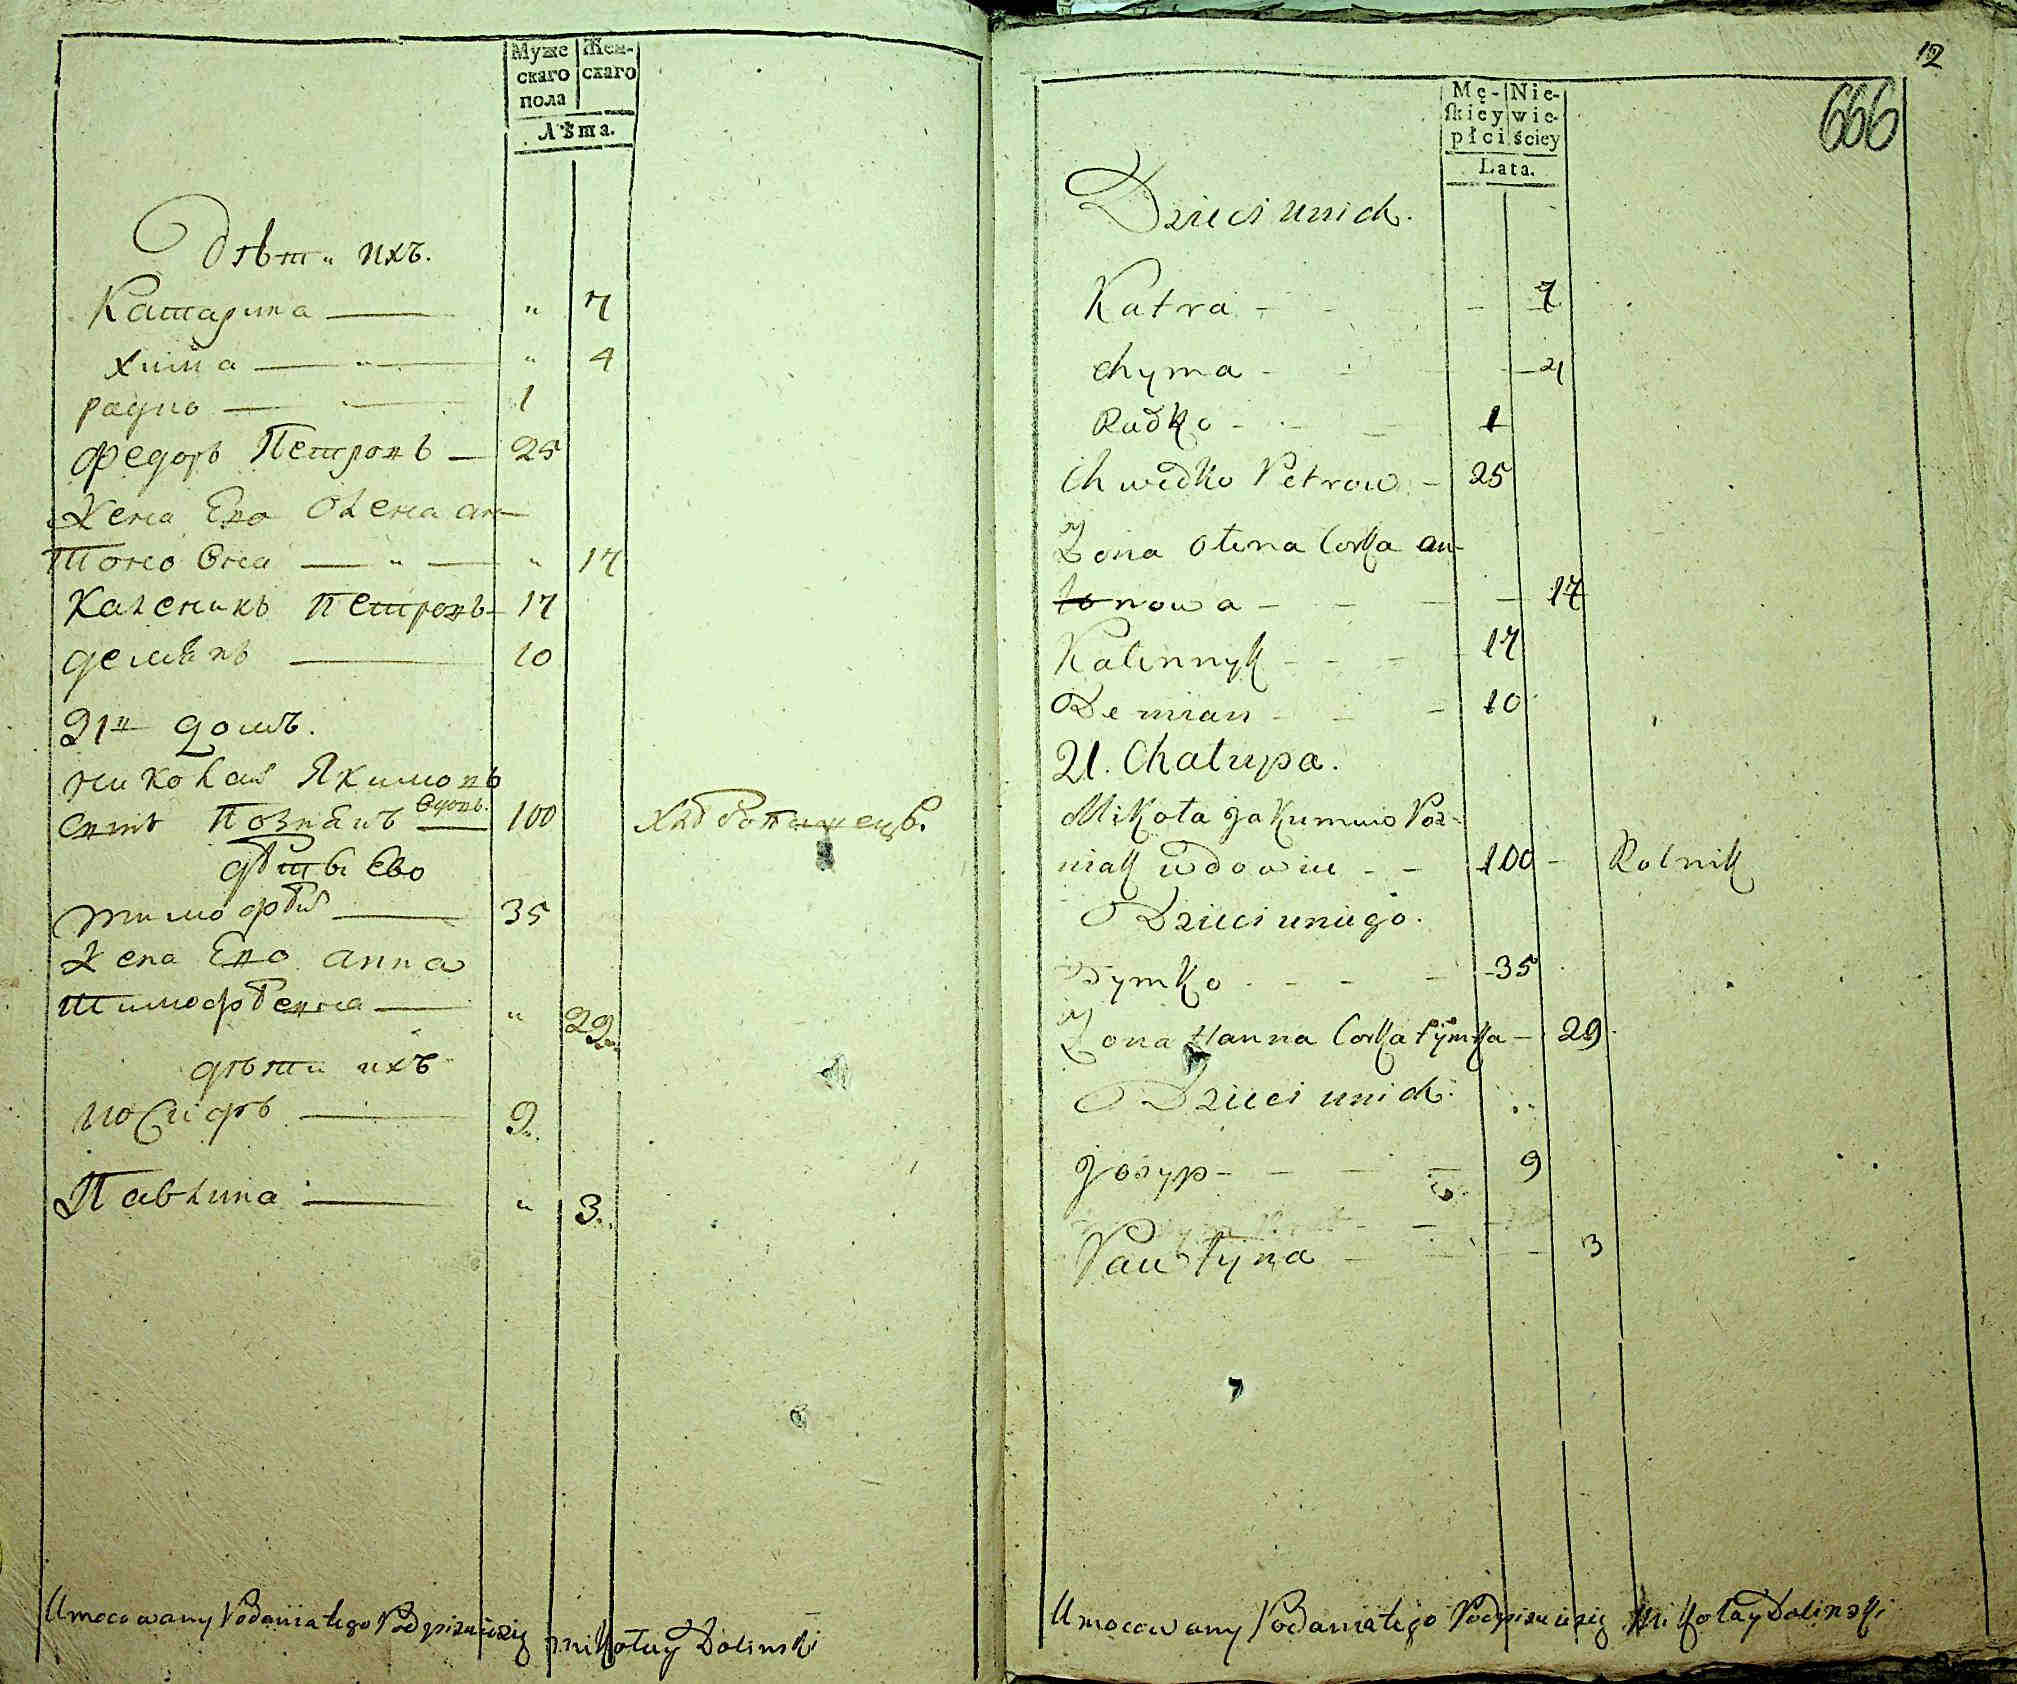 Муже
скаго
пола
Жен-
скаго
Лѣта.
дѣти ихъ.
Катарина — " 7
Хима — " — " 4
радко — 1
Федоръ Петровъ — 25
Жена Его Олена ан-
тонова — " — " 17
Каленикъ Петровъ — 17
демянъ — 10
21й домъ.
николай Якимовъ
сынъ Познякъ вдовъ. 100 Хлѣбопашецъ.
дѣти Ево
тимофѣй — 35
Жена Его анна
тимофѣевна — " 29.
дѣти ихъ
иосифъ — 9.
Павлина — " 3.
Umocowany Podania tego Podpisuie się Mikołay Dolinski
12
666
Mę-
skiey
płci
Nie-
wie-
ściey
Lata.
Dzieci unich.
Katra - - - 7
Chyma - - - 4
Radko - - - 1
Chwedko Petrow - 25
Żona Olena Corka an-
tonowa - - - 17
Kalennyk - - - 17
Demian - - - 10
21. Chałupa.
Mikoła Jakumow Poz-
niak wdowiec - - 100 - Rolnik
Dzieci uniego.
Tymko - - - 35
Żona Hanna Corka tymka - 29.
Dzieci unich.
Josyp - - - 9
Pawłyna - - - 3
Umocowany Podania tego Podpisuie się Mikołay Dolinski